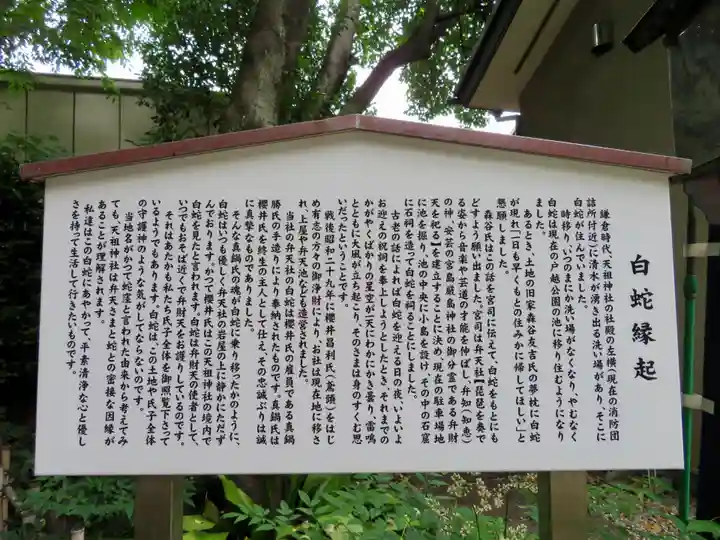 白蛇縁起
鎌倉時代、天祖神社の社殿の左横（現在の消防団
詰所付近）に清水が湧き出る洗い場があり、そこに
白蛇が住んでいました。
時移り、いつのまにか洗い場がなくなり、やむなく
白蛇は現在の戸越公園の池に移り住むようになり
ました。
あるとき、土地の旧家森谷友吉氏の夢枕に白蛇
が現れ「一日も早くもとの住みかに帰してほしい」と
懇願しました。
森谷氏はこの話を宮司に伝えて、白蛇をもとにも
どすよう願い出ました。宮司は弁天社【琵琶を奏で
る姿から音楽や芸道の才能を伸ばし、弁知（知恵）
の神、安芸の宮島厳島神社の御分霊である弁財
天を祀る】を建立することに決め、現在の駐車場地
に池を掘り、池の中央に小島を設け、その中の石窟
に石祠を造って白蛇を祠ることにしました。
古老の話によれば白蛇を迎える日の夜、いよいよ
お迎えの祝詞を奉上しようとしたとき、それまでの
かがやくばかりの星空が一天にわかにかき曇り、雷鳴
とともに大風が立ち起こり、そのさまは身のすくむ思
いだったということです。
戦後昭和二十九年に櫻井昌利氏（鳶頭）をはじ
め有志の方々の御浄財により、お社は現在地に移さ
れ、上屋や弁天池なども造営されました。
当社の弁天社の白蛇は櫻井氏の雇員である真鍋
勝氏の手造りにより奉納されたものです。真鍋氏は
櫻井氏を終生の主人として仕え、その忠誠ぶりは誠
に真摯なものでありました。
そんな真鍋氏の魂が白蛇に乗り移ったかのように、
白蛇はいつも優しく弁天社の岩屋の上に静かにたたず
んでおります。かつて櫻井氏はこの天祖神社の境内で
白蛇を見たと言われます。白蛇は弁財天の使者として、
いつでもおそば近くで弁財天をお護りしているのです。
それはあたかも私たち氏子全体を御照覧下さって
いるようでもあります。白蛇は、この土地や氏子全体
の守護神のような気がしてならないのです。
当地名がかつて蛇窪と言われた由来から考えてみ
ても、天祖神社は弁天さまと蛇との密接な因縁が
あることが理解されます。
私達はこの白蛇にあやかって、平素清浄な心と優し
さを持って生活して行きたいものです。